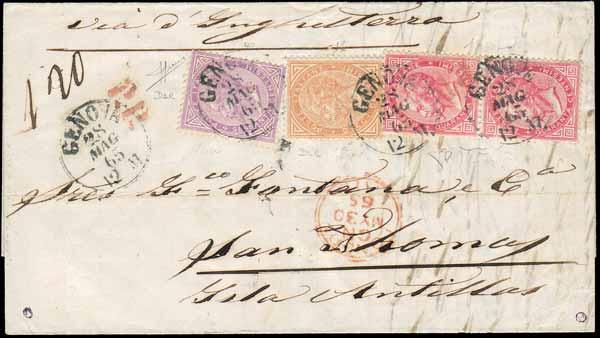 via d'Inghilterra
1 20
P.D.
GENOVA
28
MAG
65
12 M
GENOVA
28
MAG
65
12 M
GENOVA
28
MAG
65
12 M
GENOVA
28
MAG
65
12 M
Sres. Fco Fontana e Ca
San Thomas
Isla Antillas
MY 30
65